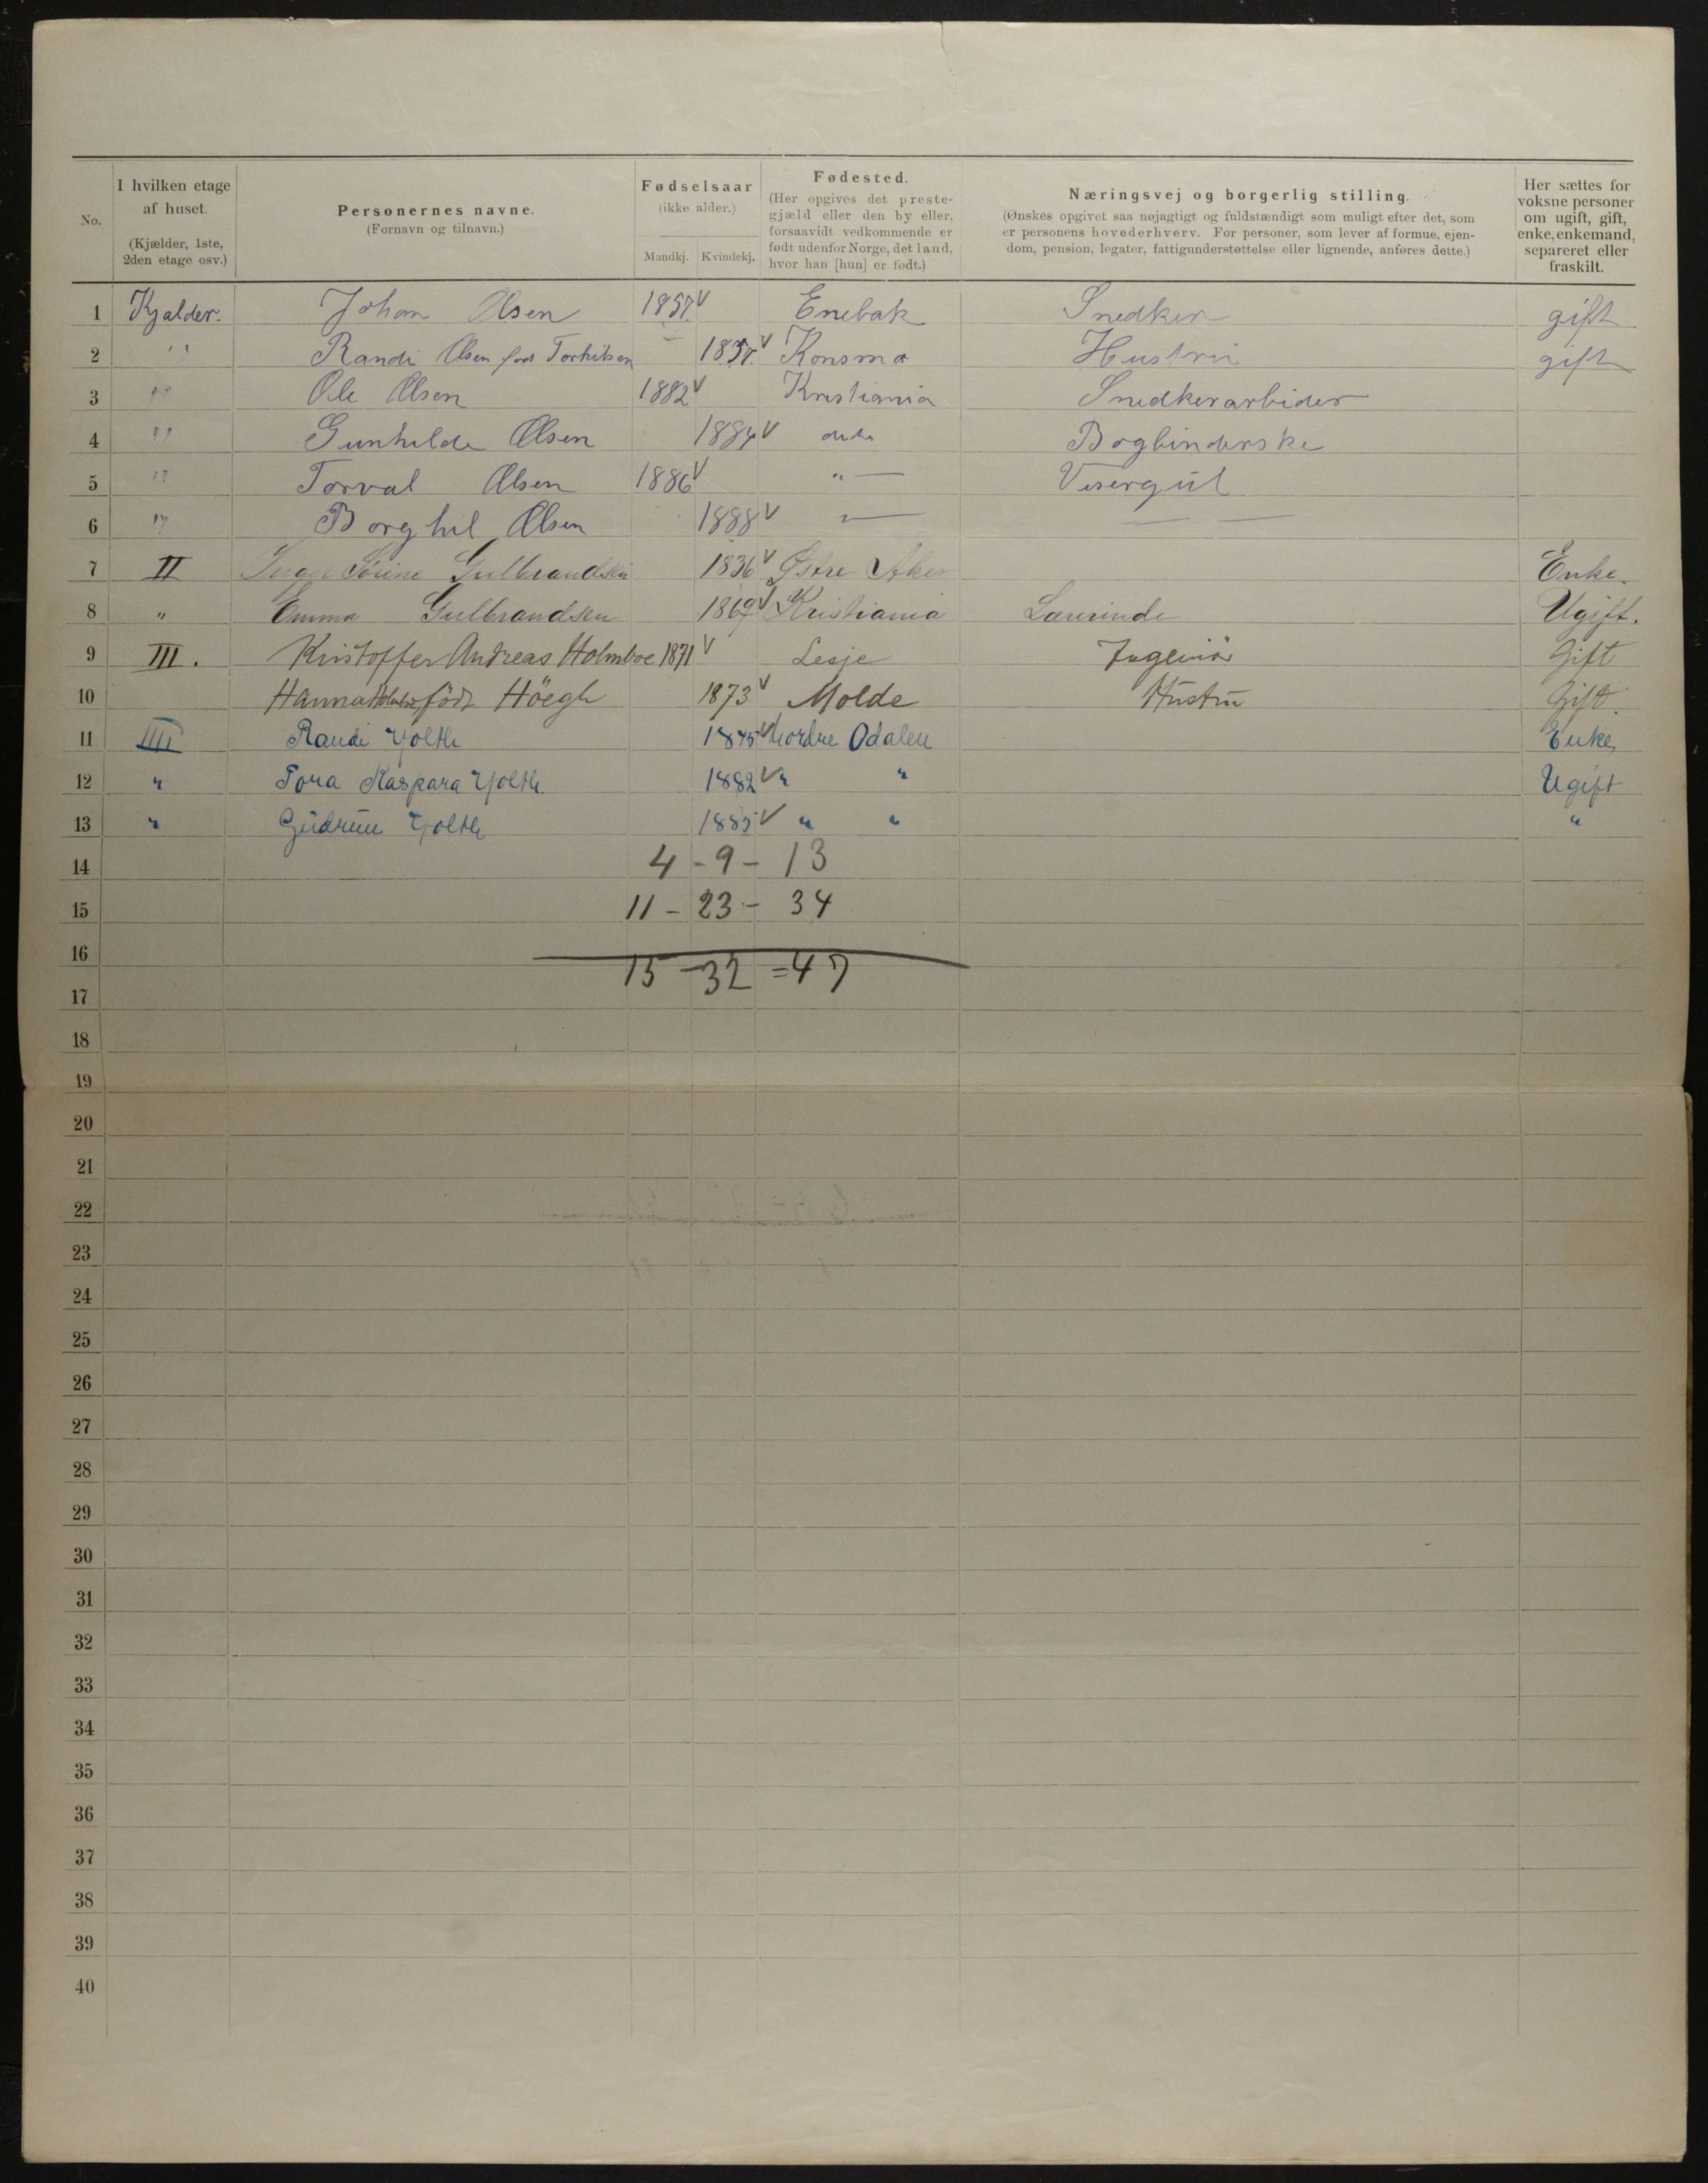 No.
I hvilken etage af huset. (Kjælder, 1ste, 2den etage osv.)
Personernes navne. (Fornavn og tilnavn.)
Fødselsaar (ikke alder.) Mandkj. Kvindekj.
Fødested. (Her opgives det prestegjæld eller den by eller, forsaavidt vedkommende er født udenfor Norge, det land, hvor han [hun] er født.)
Næringsvej og borgerlig stilling. (Ønskes opgivet saa nøjagtigt og fuldstændigt som muligt efter det, som er personens hovederhverv. For personer, som lever af formue, ejendom, pension, legater, fattigunderstøttelse eller lignende, anføres dette.)
Her sættes for voksne personer om ugift, gift, enke, enkemand, separeret eller fraskilt.
1 Kjalder. Johan Olsen 1857 v Enebak Snedker gift
2 " Randi Olsen fød Torkilsen v Konsmo Hustru gift
3 " Ole Olsen 1882 v Kristiania Snedkerarbider
4 " Gunhilde Olsen 1884 v Bogbinderske
5 " Torval Olsen 1886 v " — Visergut
6 " Borghil Olsen 1888 v — — —
7 II Sørine Gulbrandsen 1836 v Østre Aker Enke.
8 " Emma Gulbrandsen 1869 v Kristiania Lærerinde Ugift.
9 III. Kristoffer Andreas Holmboe 1871 v Lesje Ingeniør Gift
10 Hanna Holmboe födt Höegh 1873 v Molde Hustru Gift.
11 IIII Randi 1845 v Nordre Odalen Enke
12 " Tora Kaspara 1882 v " " Ugift
13 " Gudrun 1885 v " " "
14 4 - 9 - 13
15 11 - 23 - 34
16
15 - 32 = 47
17
18
19
20
21
22
23
24
25
26
27
28
29
30
31
32
33
34
35
36
37
38
39
40